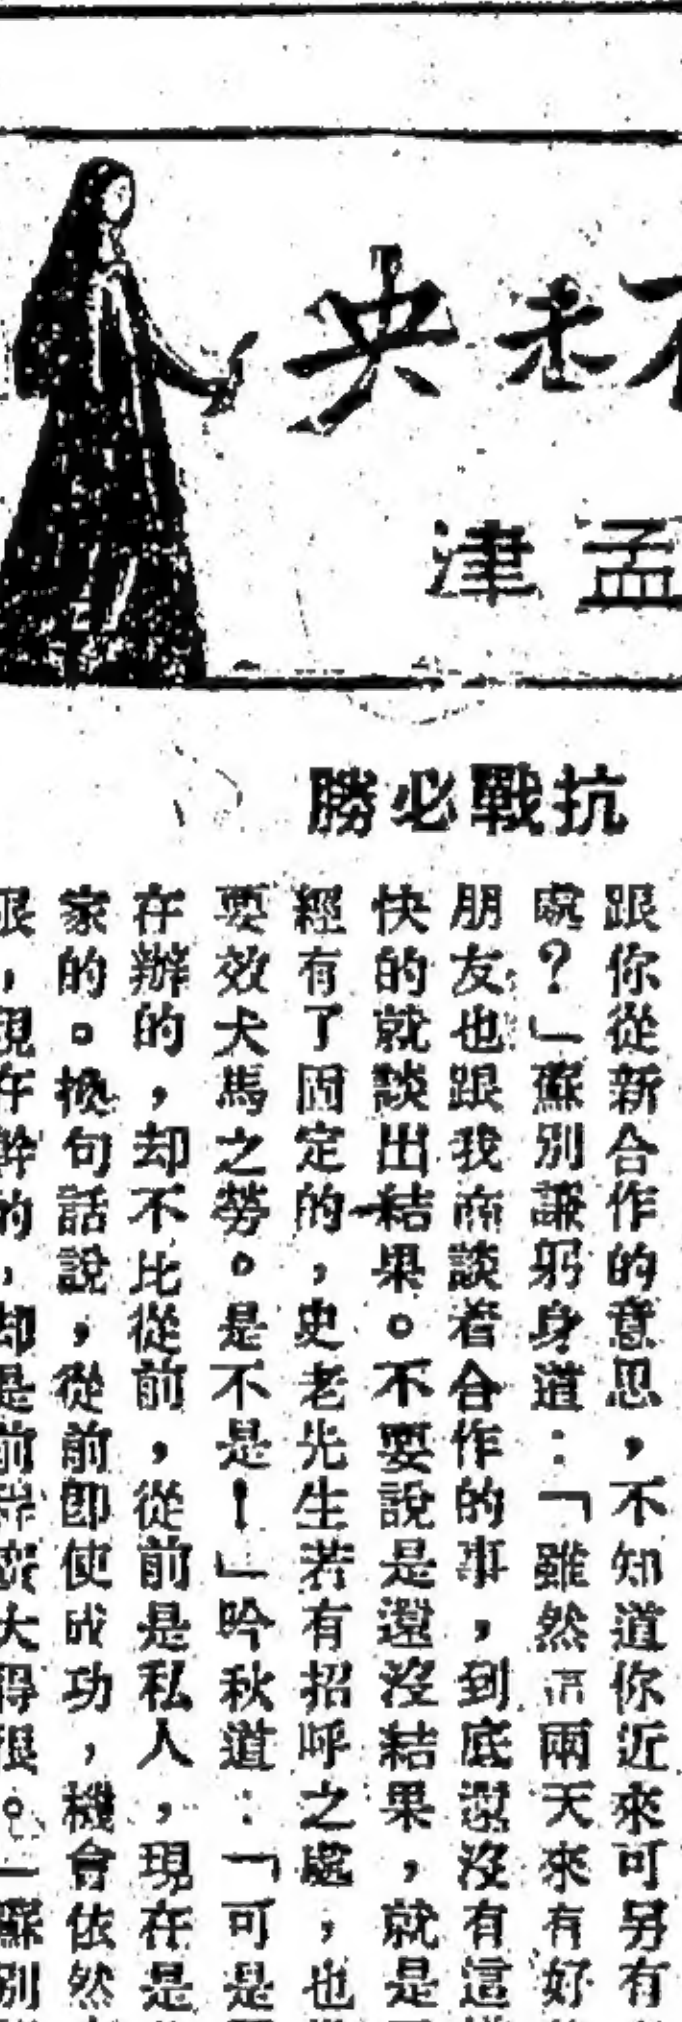 未央
孟津
抗戰必勝
跟你從新合作的意思，不知道你近來可另有
處？」蘇別謙躬身道：「雖然這兩天來有好
朋友也跟我商談着合作的事，到底還沒有這
快的就談出結果。不要說是還沒結果，就是
經有了固定的，史老先生若有招呼之處，也
要效犬馬之勞。是不是！」吟秋道：「可是
在辦的，却不比從前，從前是私人，現在是
家的。換句話說，從前即使成功，機會依然
，現在幹的，却是前 大得很。」蘇別